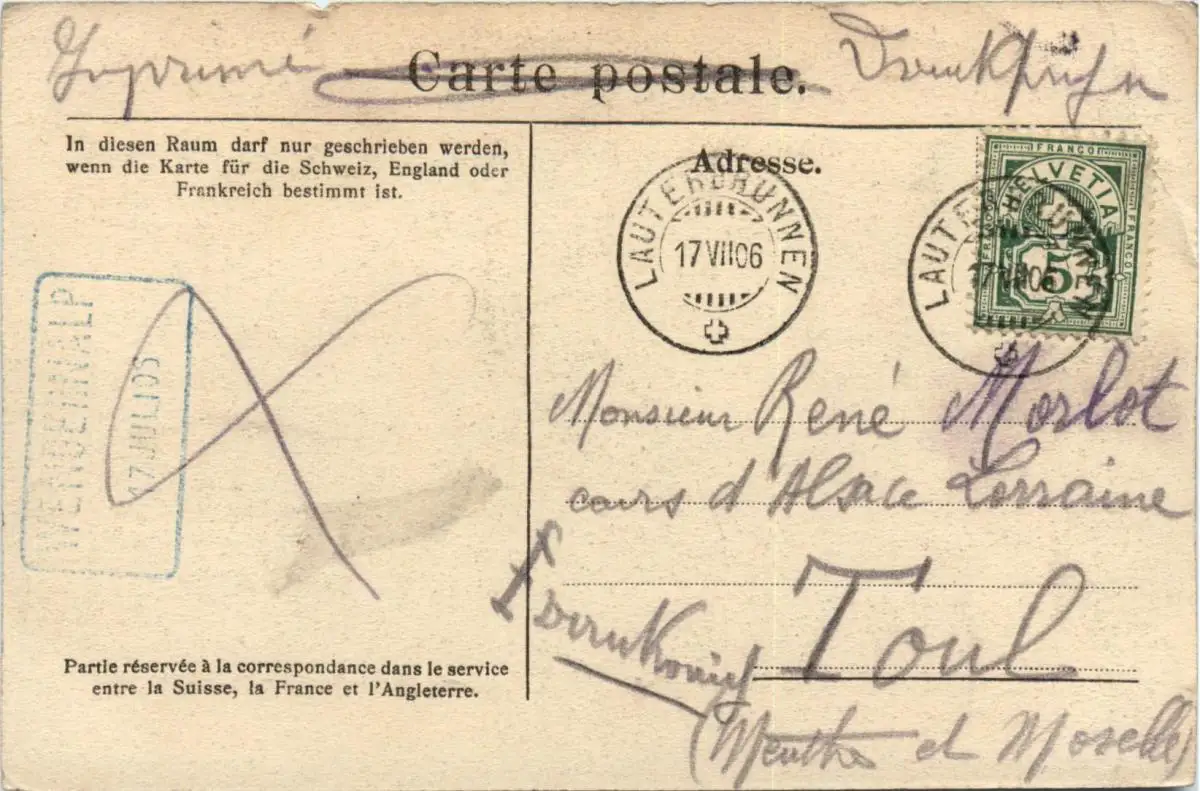 Imprimé
Carte postale.
In diesen Raum darf nur geschrieben werden,
wenn die Karte für die Schweiz, England oder
Frankreich bestimmt ist.
Adresse.
LAUTERBRUNNEN
17 VII 06
FRANCO
HELVETIA
FRANCO
FRANCO
5
LAUTERBRUNNEN
17 VII 06
WENGERNALP
17 JULI 06
Monsieur René Morlot
cours d'Alsace Lorraine
Toul
(Meurthe et Moselle)
Partie réservée à la correspondance dans le service
entre la Suisse, la France et l'Angleterre.